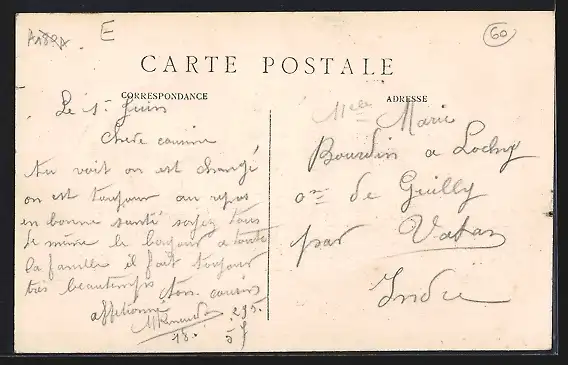 E
60
CARTE POSTALE
CORRESPONDANCE
ADRESSE
Le 1r Juin
Chere cousine
Tu voit on est changé
on est toujour au repos
en bonne santé soyez tous
de même le bonjour a toute
la famille il fait toujour
tres beautemps ton cousin
affetionné
295
18 5
Melle Marie
Bourdin a Lochy
cne de Guilly
par Vatan
Indre